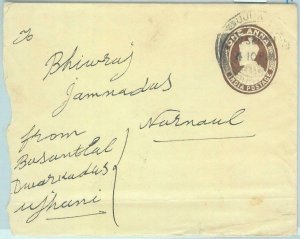 To
Bhiwraj
Jamnadas
Narnaul
from
Basantlal
Dwarkadas
Ujhani
ONE ANNA
INDIA POSTAGE